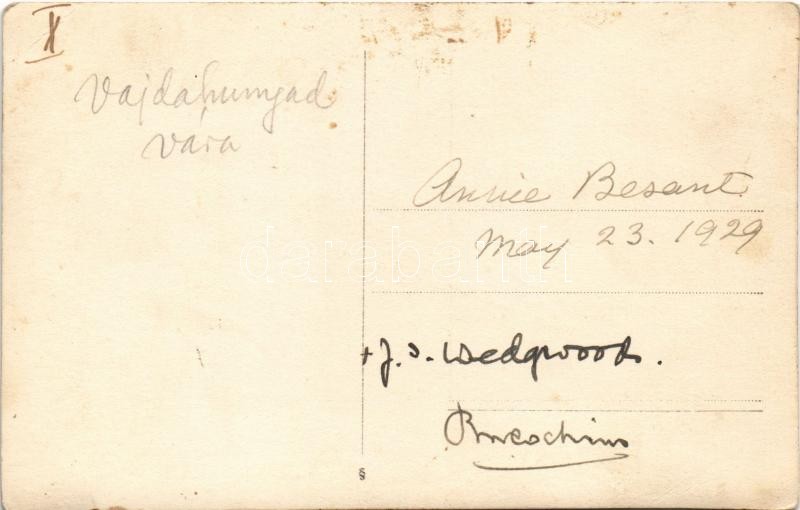 X
Vajdahunyad
vára
Annie Besant
May 23. 1929
+ J. I. Wedgwood.
§
darabanth